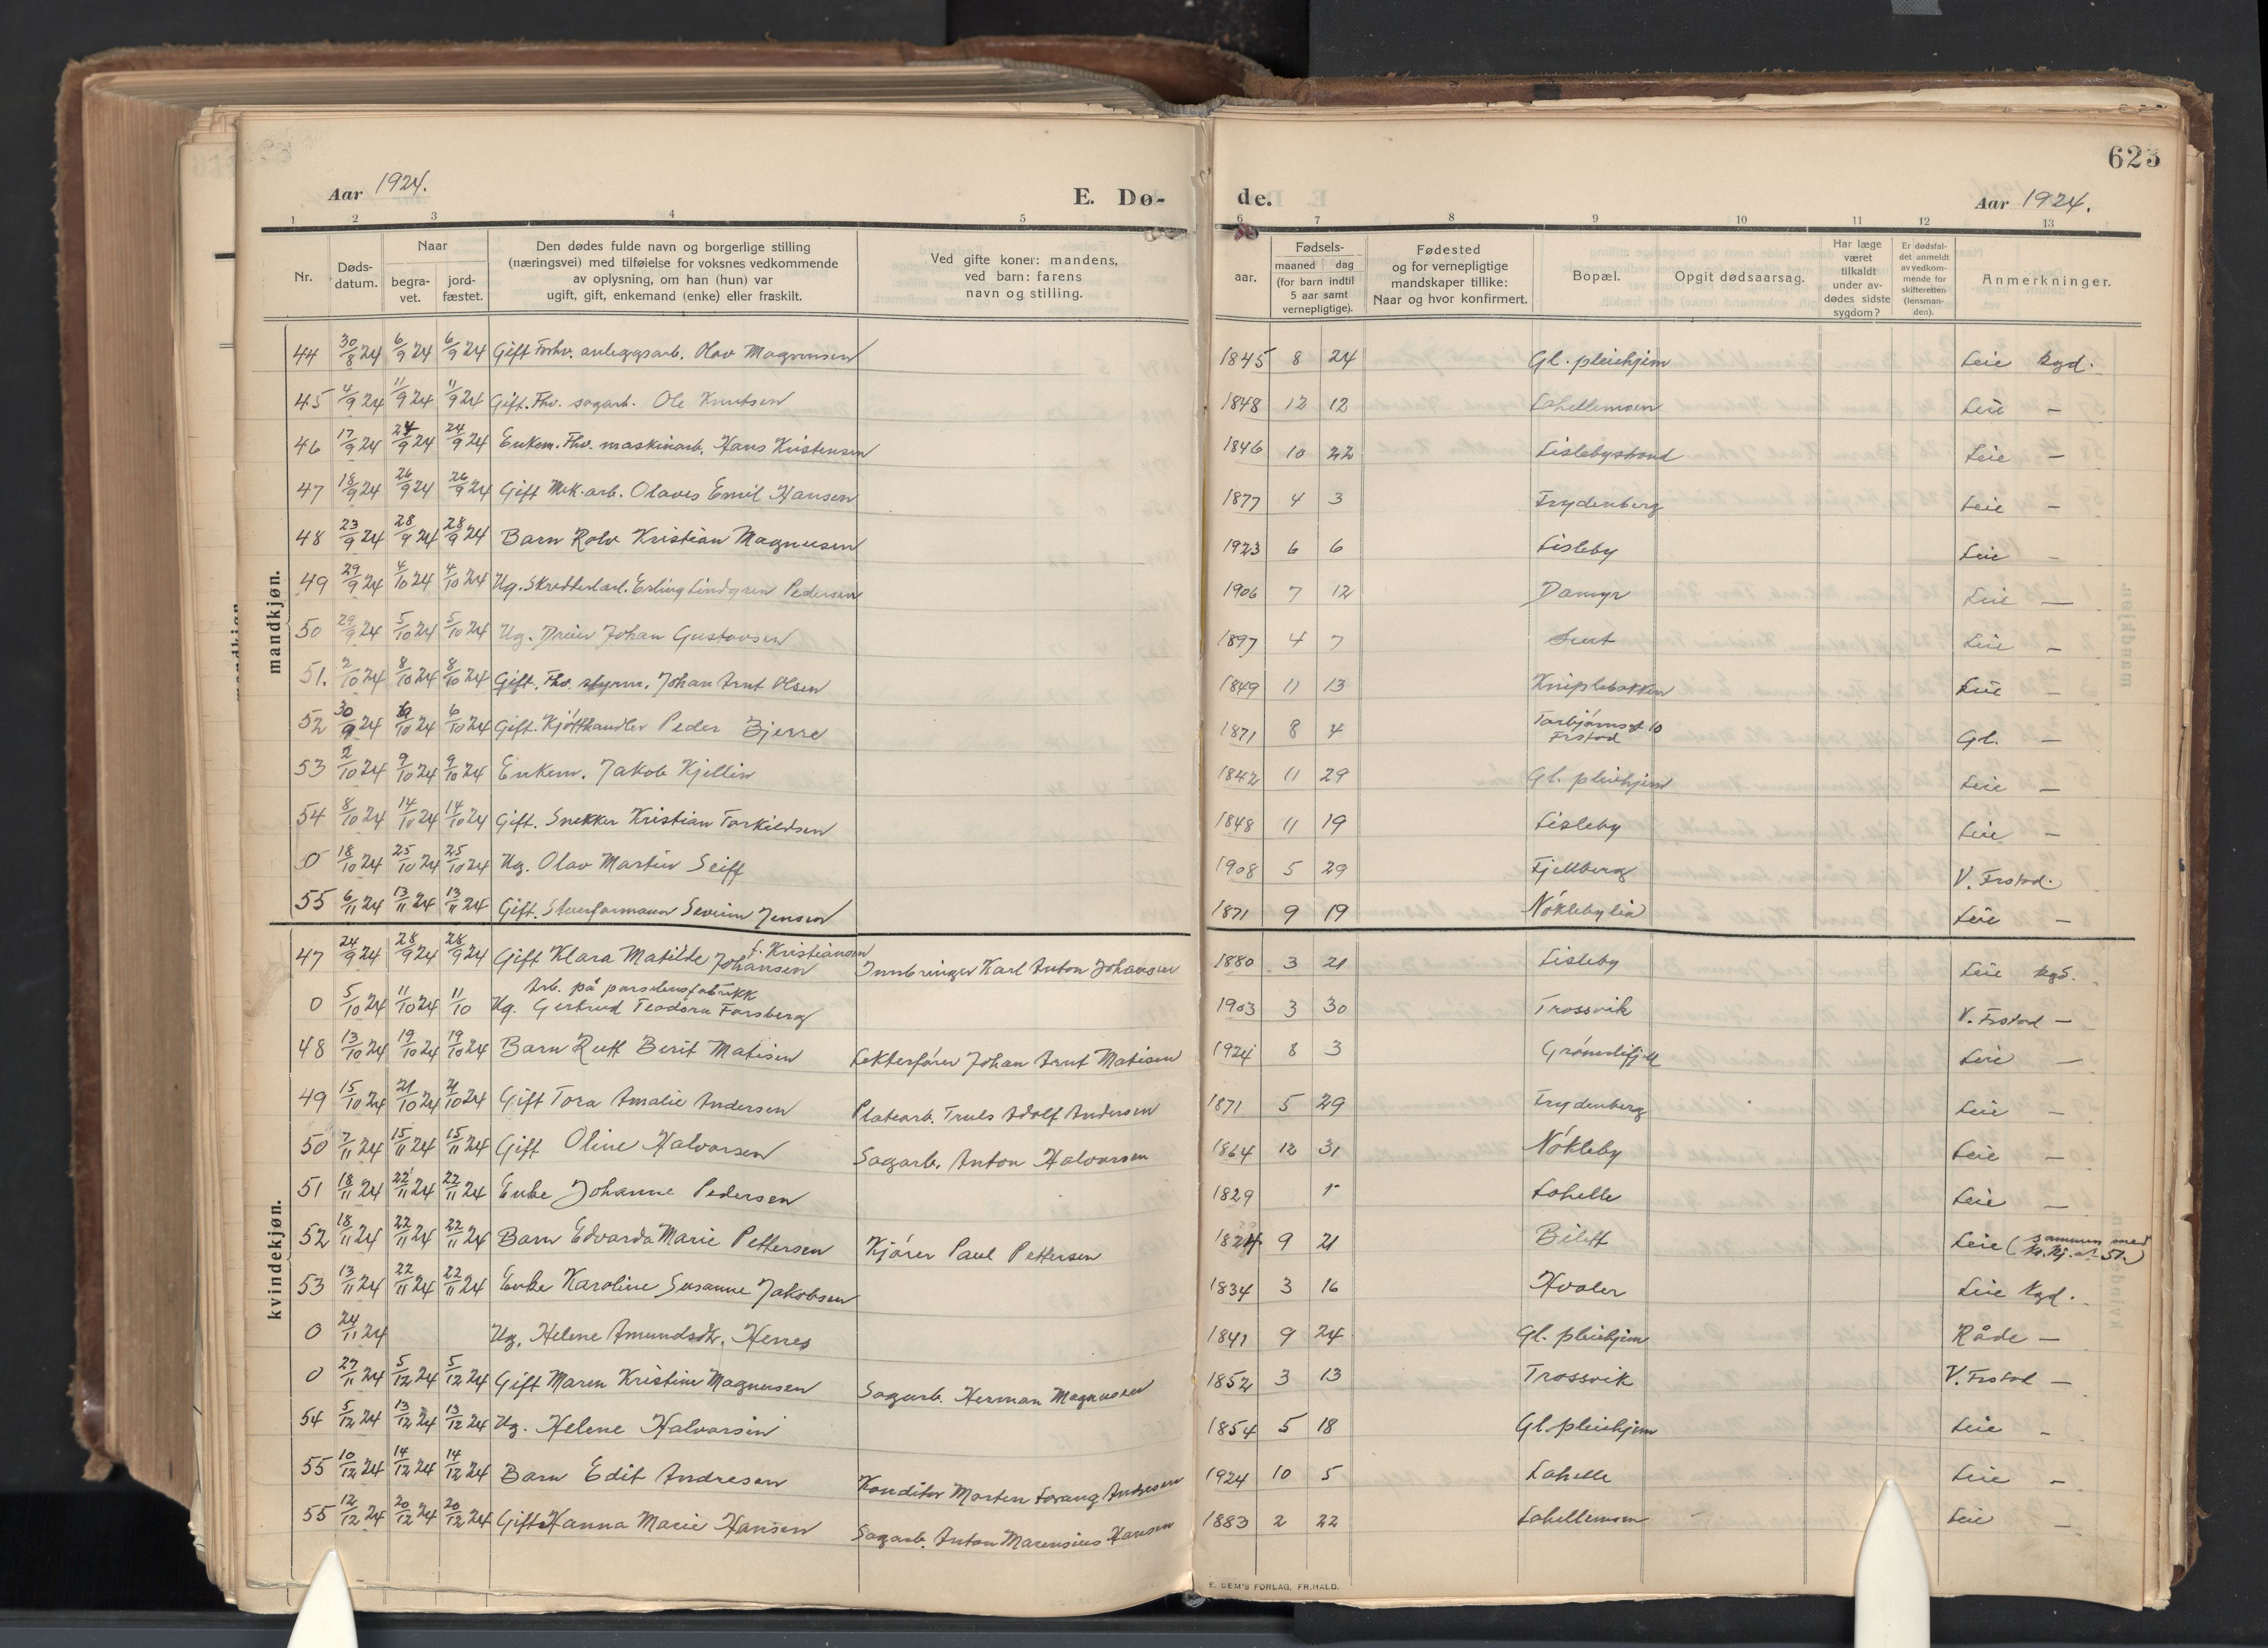 623
Aar 1924.
E. Dø-
de.
Aar 1924.
1 2 3 4 5 6 7 8 9 10 11 12 13
Nr.
Døds-
datum.
Naar
begra-
vet.
jord-
fæstet.
Den dødes fulde navn og borgerlige stilling
(næringsvei) med tilføielse for voksnes vedkommende
av oplysning, om han (hun) var
ugift, gift, enkemand (enke) eller fraskilt.
Ved gifte koner: mandens,
ved barn: farens
navn og stilling.
Fødsels-
aar.
maaned dag
(for barn indtil
5 aar samt
vernepligtige).
Fødested
og for vernepligtige
mandskaper tillike:
Naar og hvor konfirmert.
Bopæl.
Opgit dødsaarsag.
Har læge
været
tilkaldt
under av-
dødes sidste
sygdom?
Er dødsfal-
det anmeldt
av vedkom-
mende for
skifteretten
(lensman-
den).
Anmerkninger.
mandkjøn.
44 30/8 24 6/9 24 6/9 24 Gift Forhv. anleggsarb. Olav Magnussen 1845 8 24 Gl. pleiehjem Leie kgd.
45 4/9 24 11/9 24 11/9 24 Gift. Fhv. sagarb. Ole Knutsen 1848 12 12 Lahellemoen Leie —
46 17/9 24 24/9 24 24/9 24 Enkem. Fhv. maskinarb. Hans Kristensen 1846 10 22 Lislebystrand Leie —
47 18/9 24 26/9 24 26/9 24 Gift Mek. arb. Olaves Emil Hansen 1877 4 3 Frydenberg Leie —
48 23/9 24 28/9 24 28/9 24 Barn Rolv Kristian Magnussen 1923 6 6 Lisleby Leie —
49 29/9 24 4/10 24 4/10 24 Ug. Skredderlærl. Erling Lindgren Pedersen 1906 7 12 Damyr Leie —
50 29/9 24 5/10 24 5/10 24 Ug. Dreier Johan Gustavsen 1897 4 7 Leie —
51. 2/10 24 8/10 24 8/10 24 Gift. Fhv. styrm. Johan Arnt Olsen 1849 11 13 Kniplebakken Leie —
52 30/9 24 6/10 24 6/10 24 Gift. Kjøtthandler Peder Bjerre 1871 8 4 Torbjørnsgt 10 Frstad Gl. —
53 2/10 24 9/10 24 9/10 24 Enkem. Jakob Kjellin 1842 11 29 Gl. pleiehjem Leie —
54 8/10 24 14/10 24 14/10 24 Gift. Snekker Kristian Torkildsen 1848 11 19 Lisleby Leie —
0 18/10 24 25/10 24 25/10 24 Ug. Olav Martin Seiff 1908 5 29 Fjellberg V. Frstad.
55 6/11 24 13/11 24 13/11 24 Gift. Stuerformann Severin Jensen 1871 9 19 Nøklebylia Leie —
kvindekjøn.
47 24/9 24 28/9 24 28/9 24 Gift Klara Matilde Johansen f. Kristiansen Innbringer Karl Anton Johansen 1880 3 21 Lisleby Leie kgd.
0 5/10 24 11/10 24 11/10 Arb. på porselensfabrikk
Ug. Gertrud Teodora Forsberg 1903 3 30 Trossvik V. Frstad —
48 13/10 24 19/10 24 19/10 24 Barn Rutt Berit Matisen Lekterfører Johan Arnt Matisen 1924 8 3 Grønnlifjell Leie —
49 15/10 24 21/10 24 21/10 24 Gift Tora Amalie Andersen Platearb. Truls Adolf Andersen 1871 5 29 Frydenberg Leie —
50 7/11 24 15/11 24 15/11 24 Gift Oline Halvorsen Sagarb. Anton Halvorsen 1864 12 31 Nøkleby Leie —
51 18/11 24 22/11 24 22/11 24 Enke Johanne Pedersen 1829 Lahelle Leie —
52 18/11 24 22/11 24 22/11 24 Barn Edvarda Marie Pettersen Kjører Paul Pettersen 1924 9 21 Bilett Leie (sammen med
kv. kj. nr 51.)
53 13/11 24 22/11 24 22/11 24 Enke Karoline Susanne Jakobsen 1834 3 16 Hvaler Leie kgd.
0 24/11 24 Ug. Helene Amundsdtr. Herres 1841 9 24 Gl. pleiehjem Råde —
0 27/11 24 5/12 24 5/12 24 Gift Maren Kristine Magnussen Sagarb. Herman Magnussen 1852 3 13 Trossvik V. Frstad —
54 5/12 24 13/12 24 13/12 24 Ug. Helene Halvorsen 1854 5 18 Gl. pleiehjem Leie —
55 10/12 24 14/12 24 14/12 24 Barn Edit Andresen Konditor Morten Andresen 1924 10 5 Lahelle Leie —
55 12/12 24 20/12 24 20/12 24 Gift Hanna Marie Hansen Sagarb. Anton Marensius Hansen 1883 2 22 Lahellemoen Leie —
E. DEM'S FORLAG, FR.HALD.